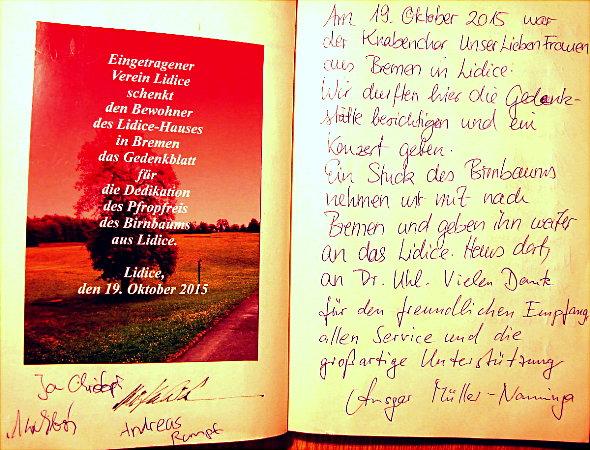 Eingetragener
Verein Lidice
schenkt
den Bewohner
des Lidice-Hauses
in Bremen
das Gedenkblatt
für
die Dedikation
des Pfropfreis
des Birnbaums
aus Lidice.
Lidice,
den 19. Oktober 2015
Andreas
Rumpf
Am 19. Oktober 2015 war
der Knabenchor Unser Lieben Frauen
aus Bremen in Lidice.
Wir durften hier die Gedenk-
stätte besichtigen und ein
Konzert geben.
Ein Stück des Birnbaums
nehmen wir mit nach
Bremen und geben ihn weiter
an das Lidice. Haus dort,
an Dr. Uhl. Vielen Dank
für den freundlichen Empfang
allen Service und die
großartige Unterstützung
Ansgar Müller-Nanninga